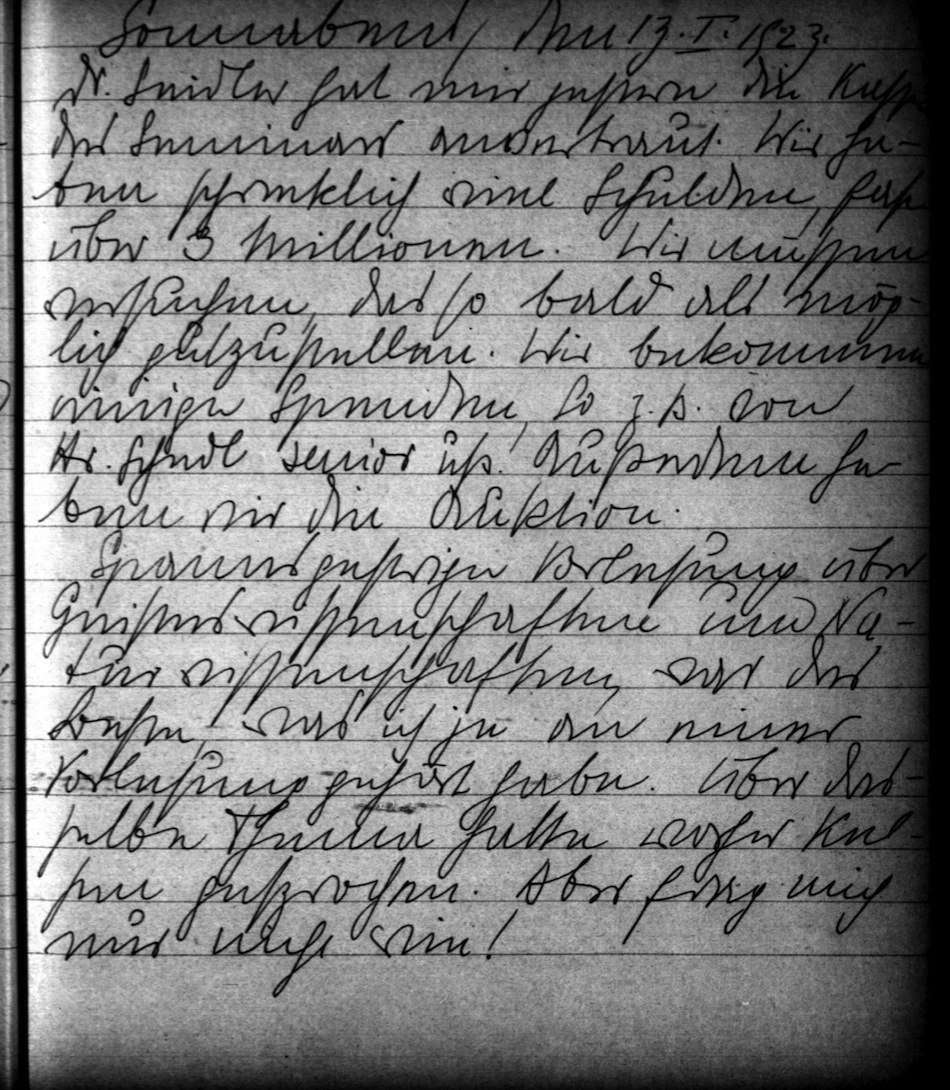 Sonnabend, den 13.I.1923.
Dr. Seidler hat mir gestern die Kasse
des Seminars anvertraut. Wir ha-
ben schrecklich viel Schulden, fast
über 3 Millionen. Wir müssen
versuchen, das so bald als mög-
lich gutzustellen. Wir bekommen
einige Spenden, so z.B. von
Hr. Schedl senior usf. Außerdem ha-
ben wir die Auktion.
Spanns gestrige Vorlesung über
Geisteswissenschaften und Na-
turwissenschaften, war das
Beste, was ich je an einer
Vorlesung gehört habe. Über das-
selbe Thema hatte vorher Kel-
sen gesprochen. Aber frag mich
nur nicht wie!